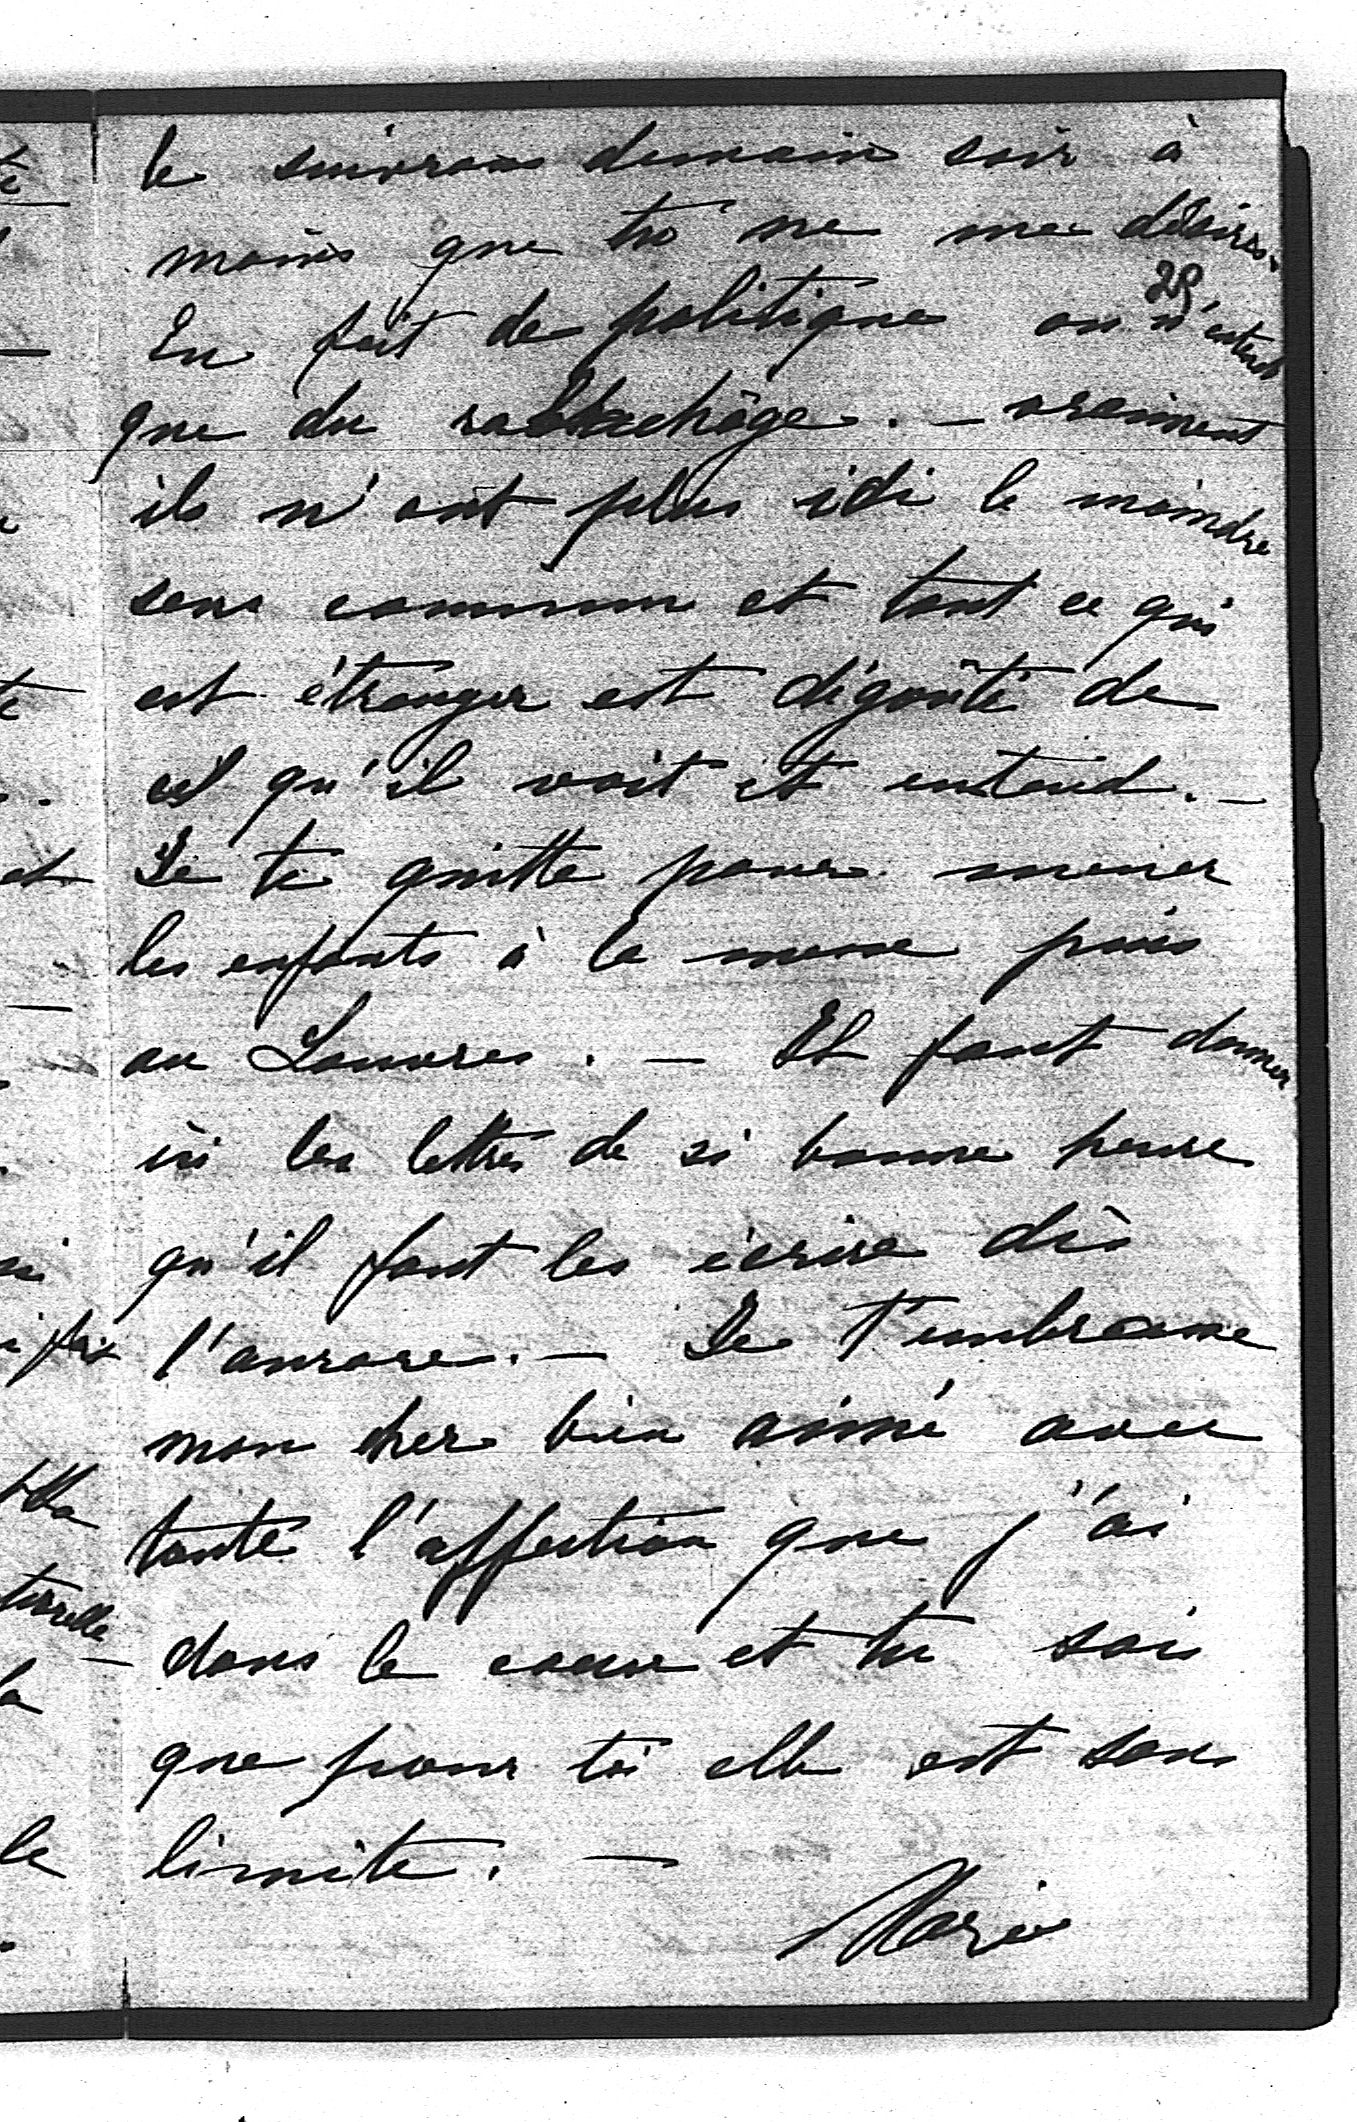 le suivrons demain soir à
moins que tu ne me désires.
29
En fait de politique on n'entend
que du rabachâge. — vraiment
ils n'ont plus ici le moindre
sens commun et tout ce qui
est étranger est dégoûté de
ce qu'il voit et entend. —
Je te quitte pour mener
les enfants à la messe puis
au Louvres. — Il faut donner
ici les lettres de si bonne heure
qu'il faut les écrire dès
l'aurore. — Je t'embrasse
mon cher bien aimé avec
toute l'affection que j'ai
dans le coeur et tu sais
que pour toi elle est sans
limite. —
Marie